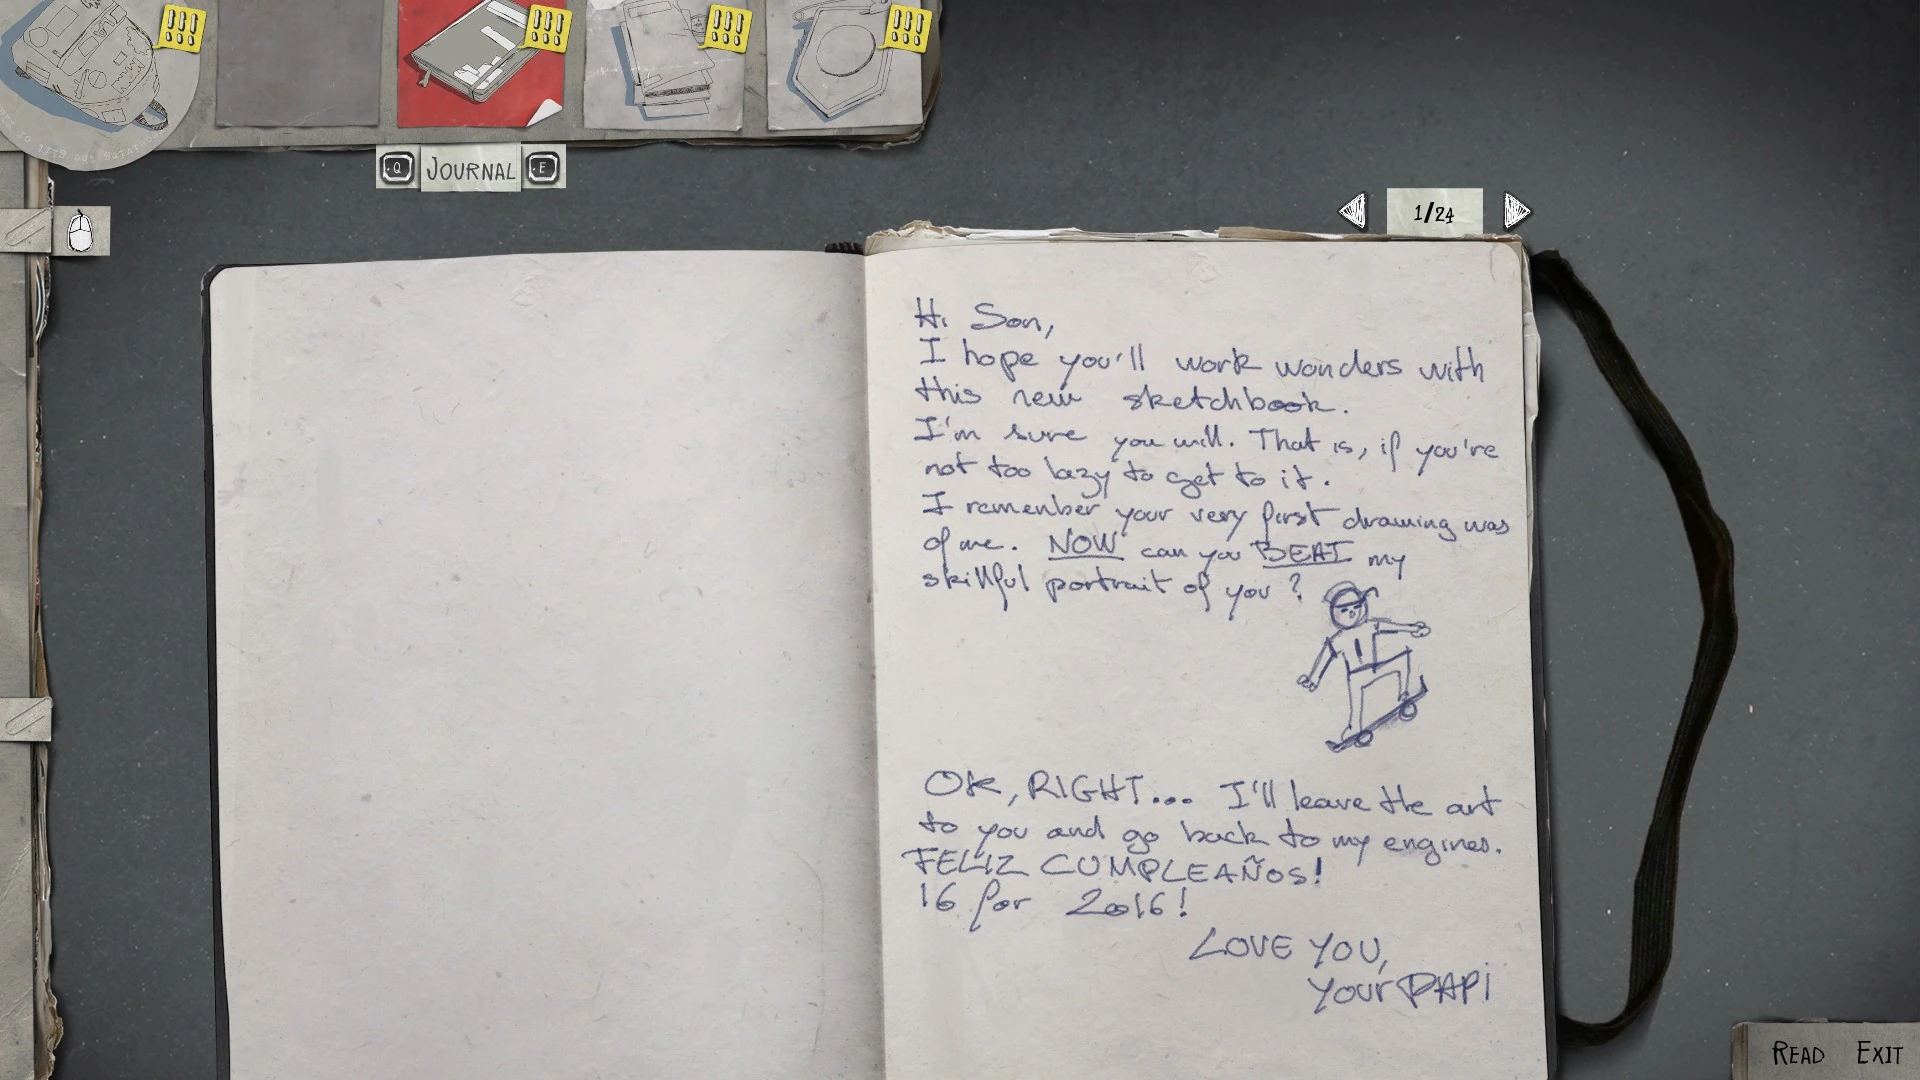 Q JOURNAL E
1/24
Hi Son,
I hope you'll work wonders with
this new sketchbook.
I'm sure you will. That is, if you're
not too lazy to get to it.
I remember your very first drawing was
of me. NOW can you BEAT my
skillful portrait of you?
OK, RIGHT... I'll leave the art
to you and go back to my engines.
FELIZ CUMPLEAÑOS!
16 for 2016!
LOVE YOU,
Your PAPI
READ EXIT